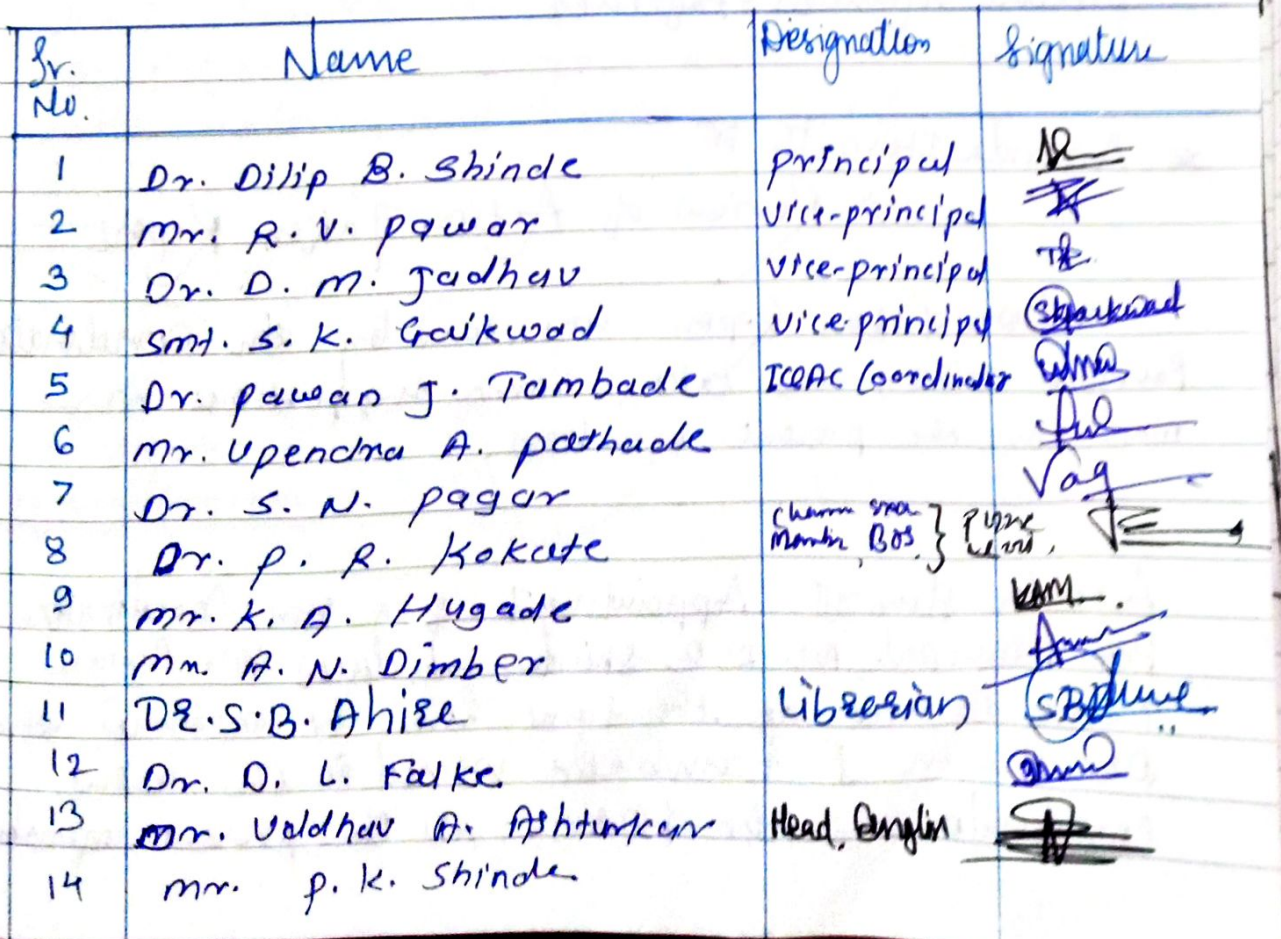 Sr. No. Name Designation Signature
1 Dr. Dilip B. Shinde principal
2 Mr. R. V. Pawar vice-principal
3 Dr. D. M. Jadhav vice-principal
4 Smt. S. K. Gaikwad vice-principal
5 Dr. Pawan J. Tambade IQAC Coordinator
6 Mr. Upendra A. Pathade
7 Dr. S. N. Pagar
8 Dr. P. R. Kokate BOS
9 Mr. K. A. Hugade KAM
10 Mr. A. N. Dimber
11 Dr. S. B. Ahire Librarian
12 Dr. D. L. Falke
13 Mr. A. Head,
14 Mr. P. K. Shinde